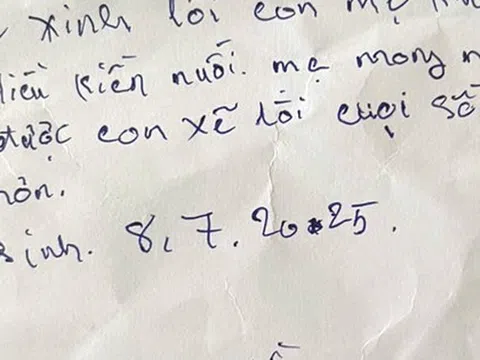 xinh lỗi con mẹ
điều kiện nuối. mẹ mong
được con xẽ lội cuọi số
hỏn.
sinh. 8, 7. 2025.